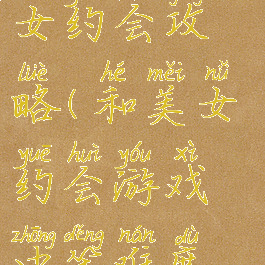 女约会攻
lüè hé měi nǚ
略(和美女
yuē huì yóu xì
约会游戏
zhōng děng nán dù